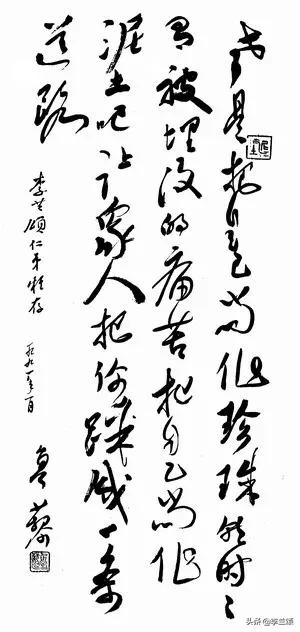 老是把自己当作珍珠就时时
有被埋没的痛苦把自己当作
泥土吧让众人把你踩成一条
道路
李兰颂仁弟雅存
一九九一年一月
鲁藜
头条 @李兰颂